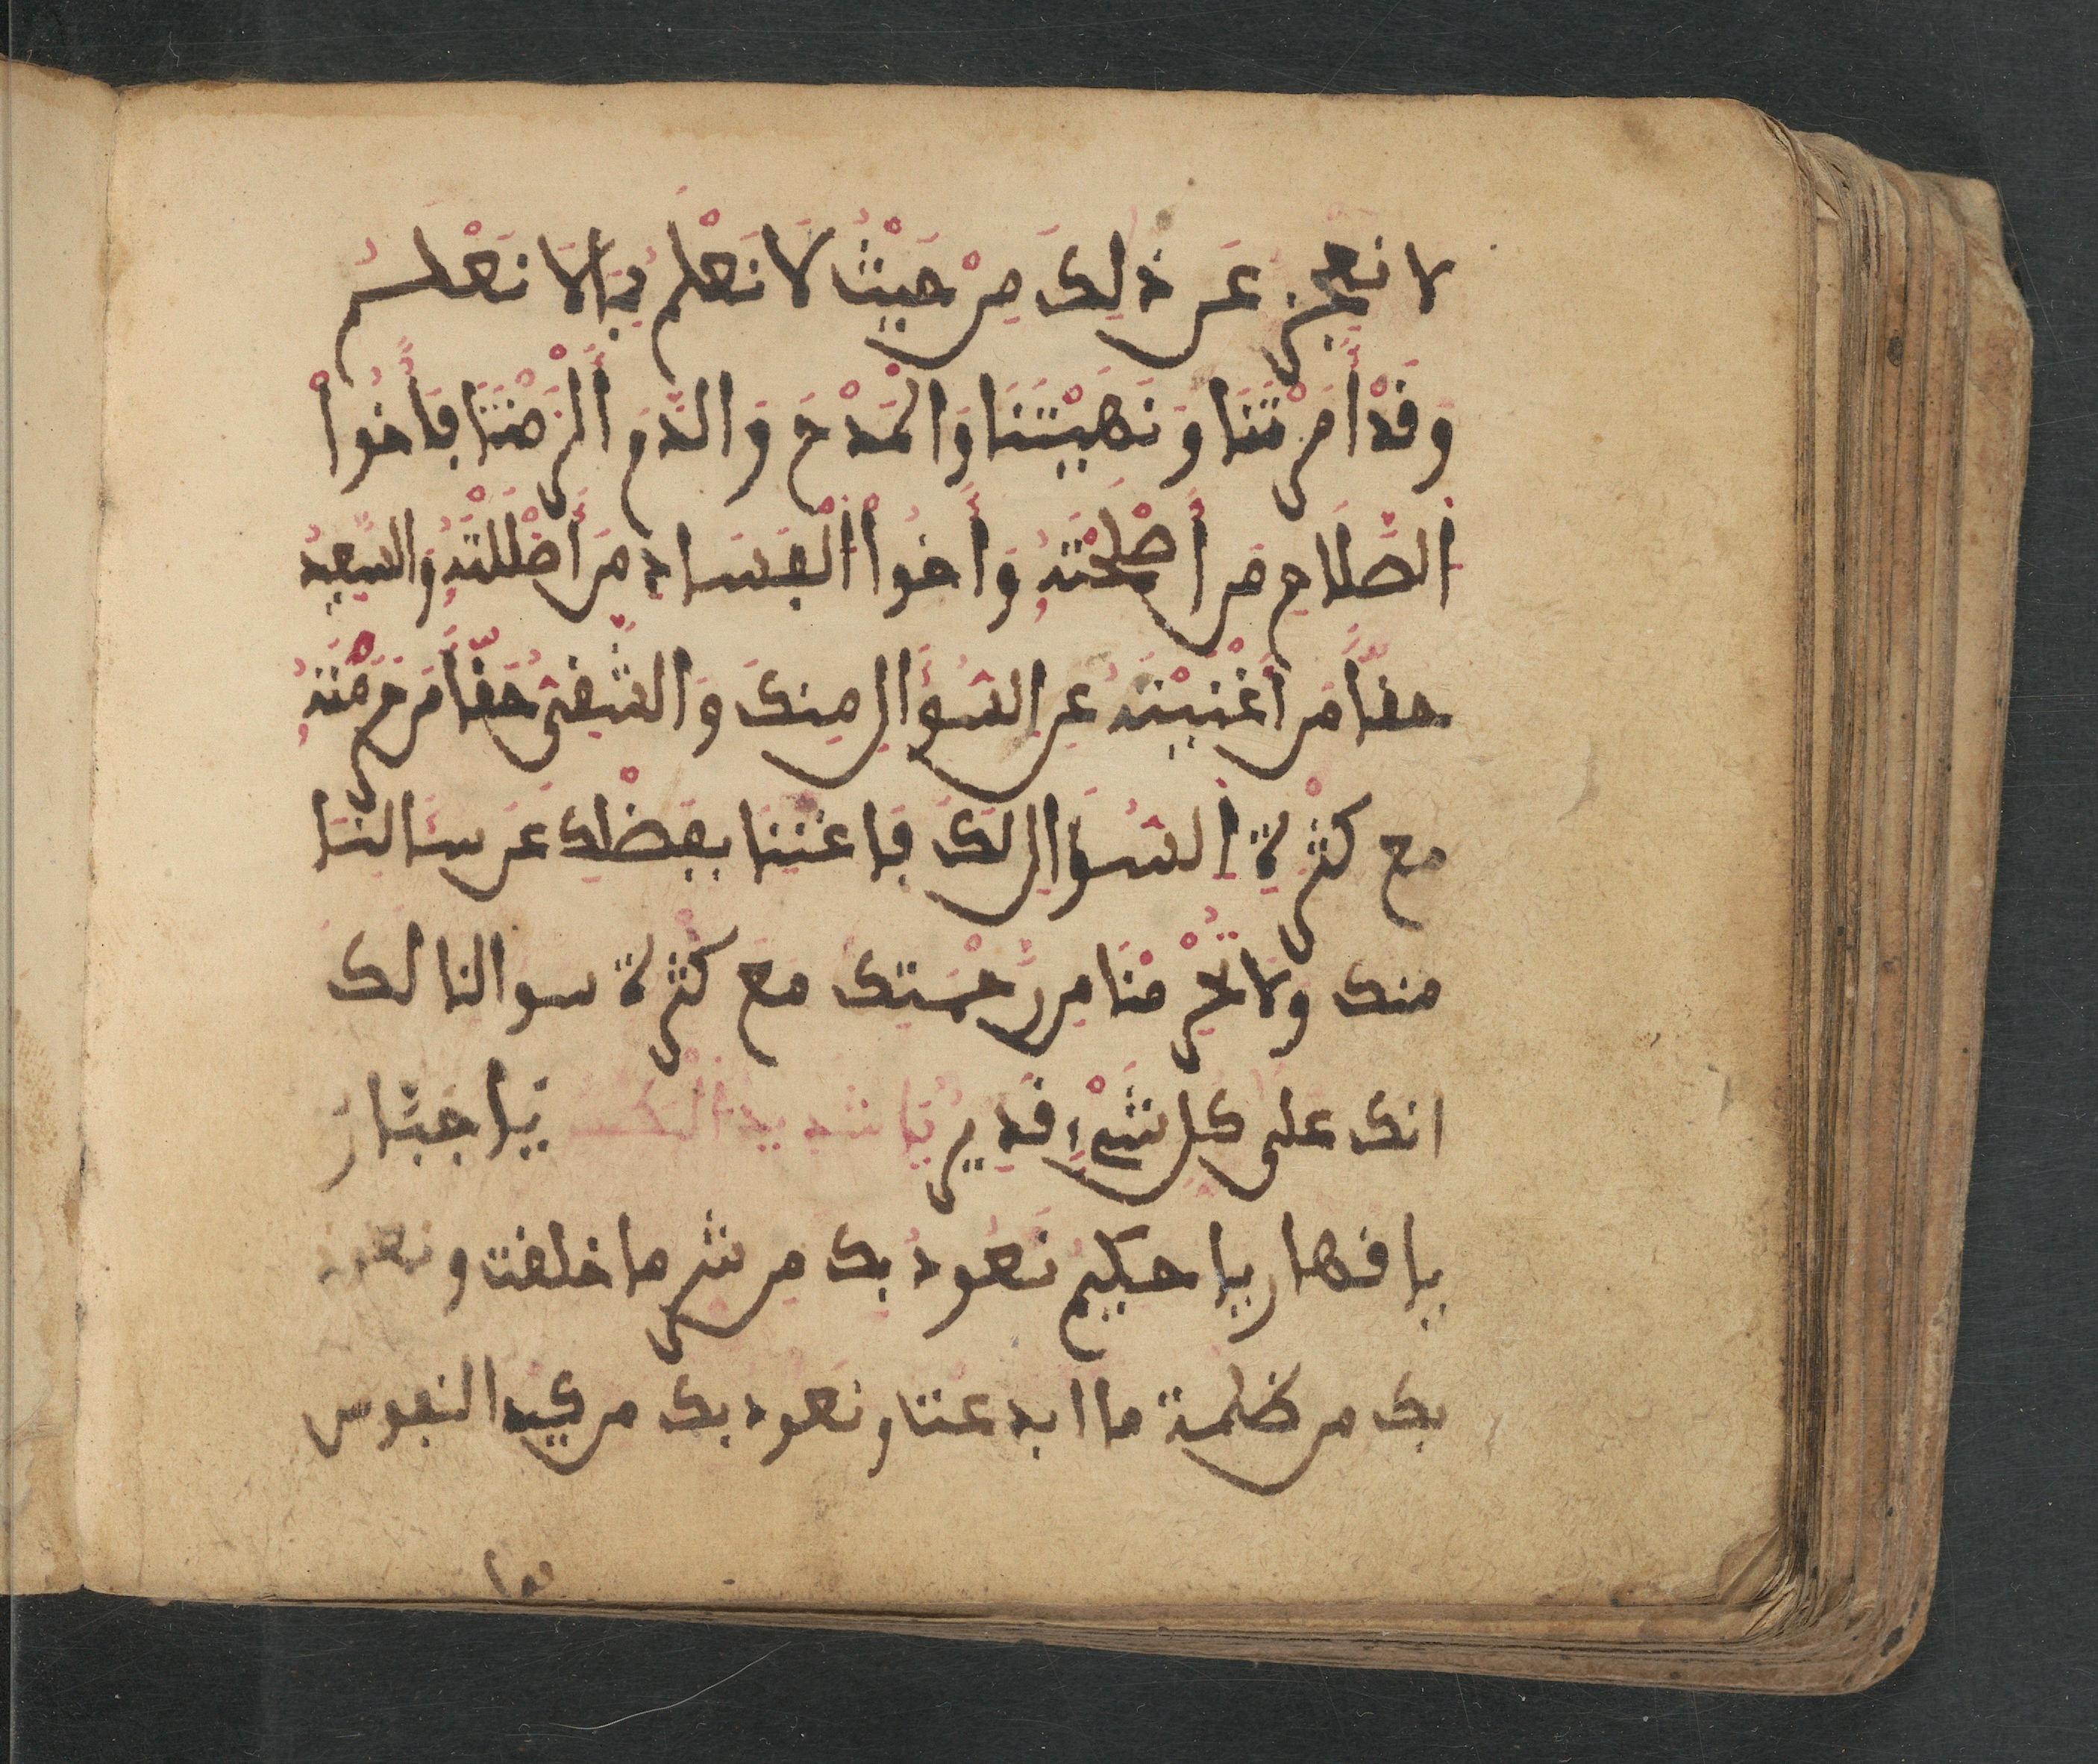 لا نعجز عَن ذلِكَ مِنْ حَيْثُ لَا نَعْلَم بِمَا لَا نَعْلَمُ
وَقَدْ أَمَرْتَنَا وَنَهَيْتَنَا وَالْمَدْحَ وَالذَّمَ أَلْزَمْتَنَا فَأَخُواْ
الصَّلَاحِ مَن أَصْلَحْتَهُ وَأَخُواْ الْفَسَادِ مَن أَضْلَلْتَهُ وَالسَّعِيدُ
حقّاً مَن أَغْنَيْتَهُ عَنِ السُّؤَالِ مِنكَ وَالشَّقِىُّ حَقّاً مَن حَرَمْتَهُ
مع كثْرَةِ السُّؤَالِ لَكَ فَاغْنِنَا بِفَضْلِكَ عَن سُؤَالِنَا
منك وَلا تَحْرِمْنَا مِن رَّحْمَتِكَ مَعَ كثْرَة سوالنا لك
انك على كل شَيْءٍ قَدِيرٌ يَا شَدِيدَ الْبَطْش يَا جَبَّارُ
يا قهار يا حكيمُ نَعُوذُ بك من شر ما خلقت ونعوذ
بك من ظلمة ما ابدعت ونعوذ بك من كيد النفوس